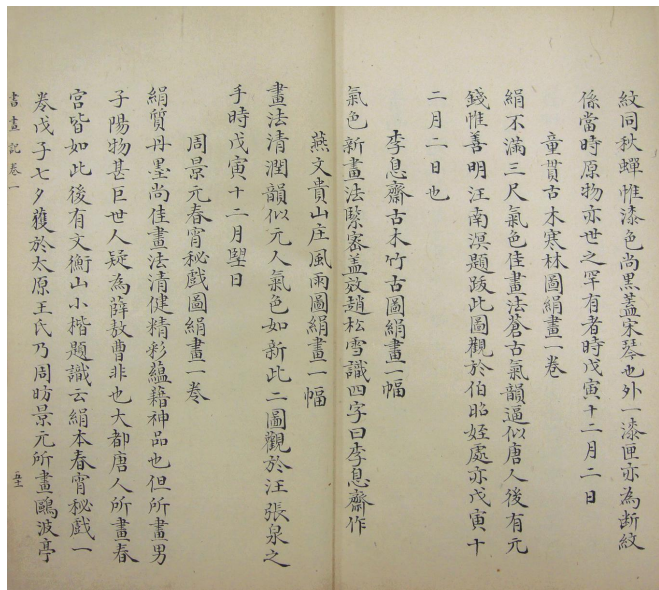 紋同秋蟬惟漆色尚黑蓋宋琴也外一漆匣亦為斷紋
係當時原物亦世之罕有者時戊寅十二月二日
童貫古木寒林圖絹畫一卷
絹不滿三尺氣色佳畫法蒼古氣韻逼似唐人後有元
錢惟善明汪南溟題跋此圖觀於伯昭姪處亦戊寅十
二月二日也
李息齋古木竹古圖絹畫一幅
氣色新畫法緊密蓋效趙松雪識四字曰李息齋作
燕文貴山庄風雨圖絹畫一幅
畫法清潤韻似元人氣色如新此二圖觀於汪張泉之
手時戊寅十二月朢日
周景元春宵秘戲圖絹畫一卷
絹質丹墨尚佳畫法清健精彩蘊藉神品也但所畫男
子陽物甚巨世人疑為薛敖曹非也大都唐人所畫春
宮皆如此後有文衡山小楷題識云絹本春宵秘戲一
卷戊子七夕獲於太原王氏乃周昉景元所畫鷗波亭
書畫記卷一